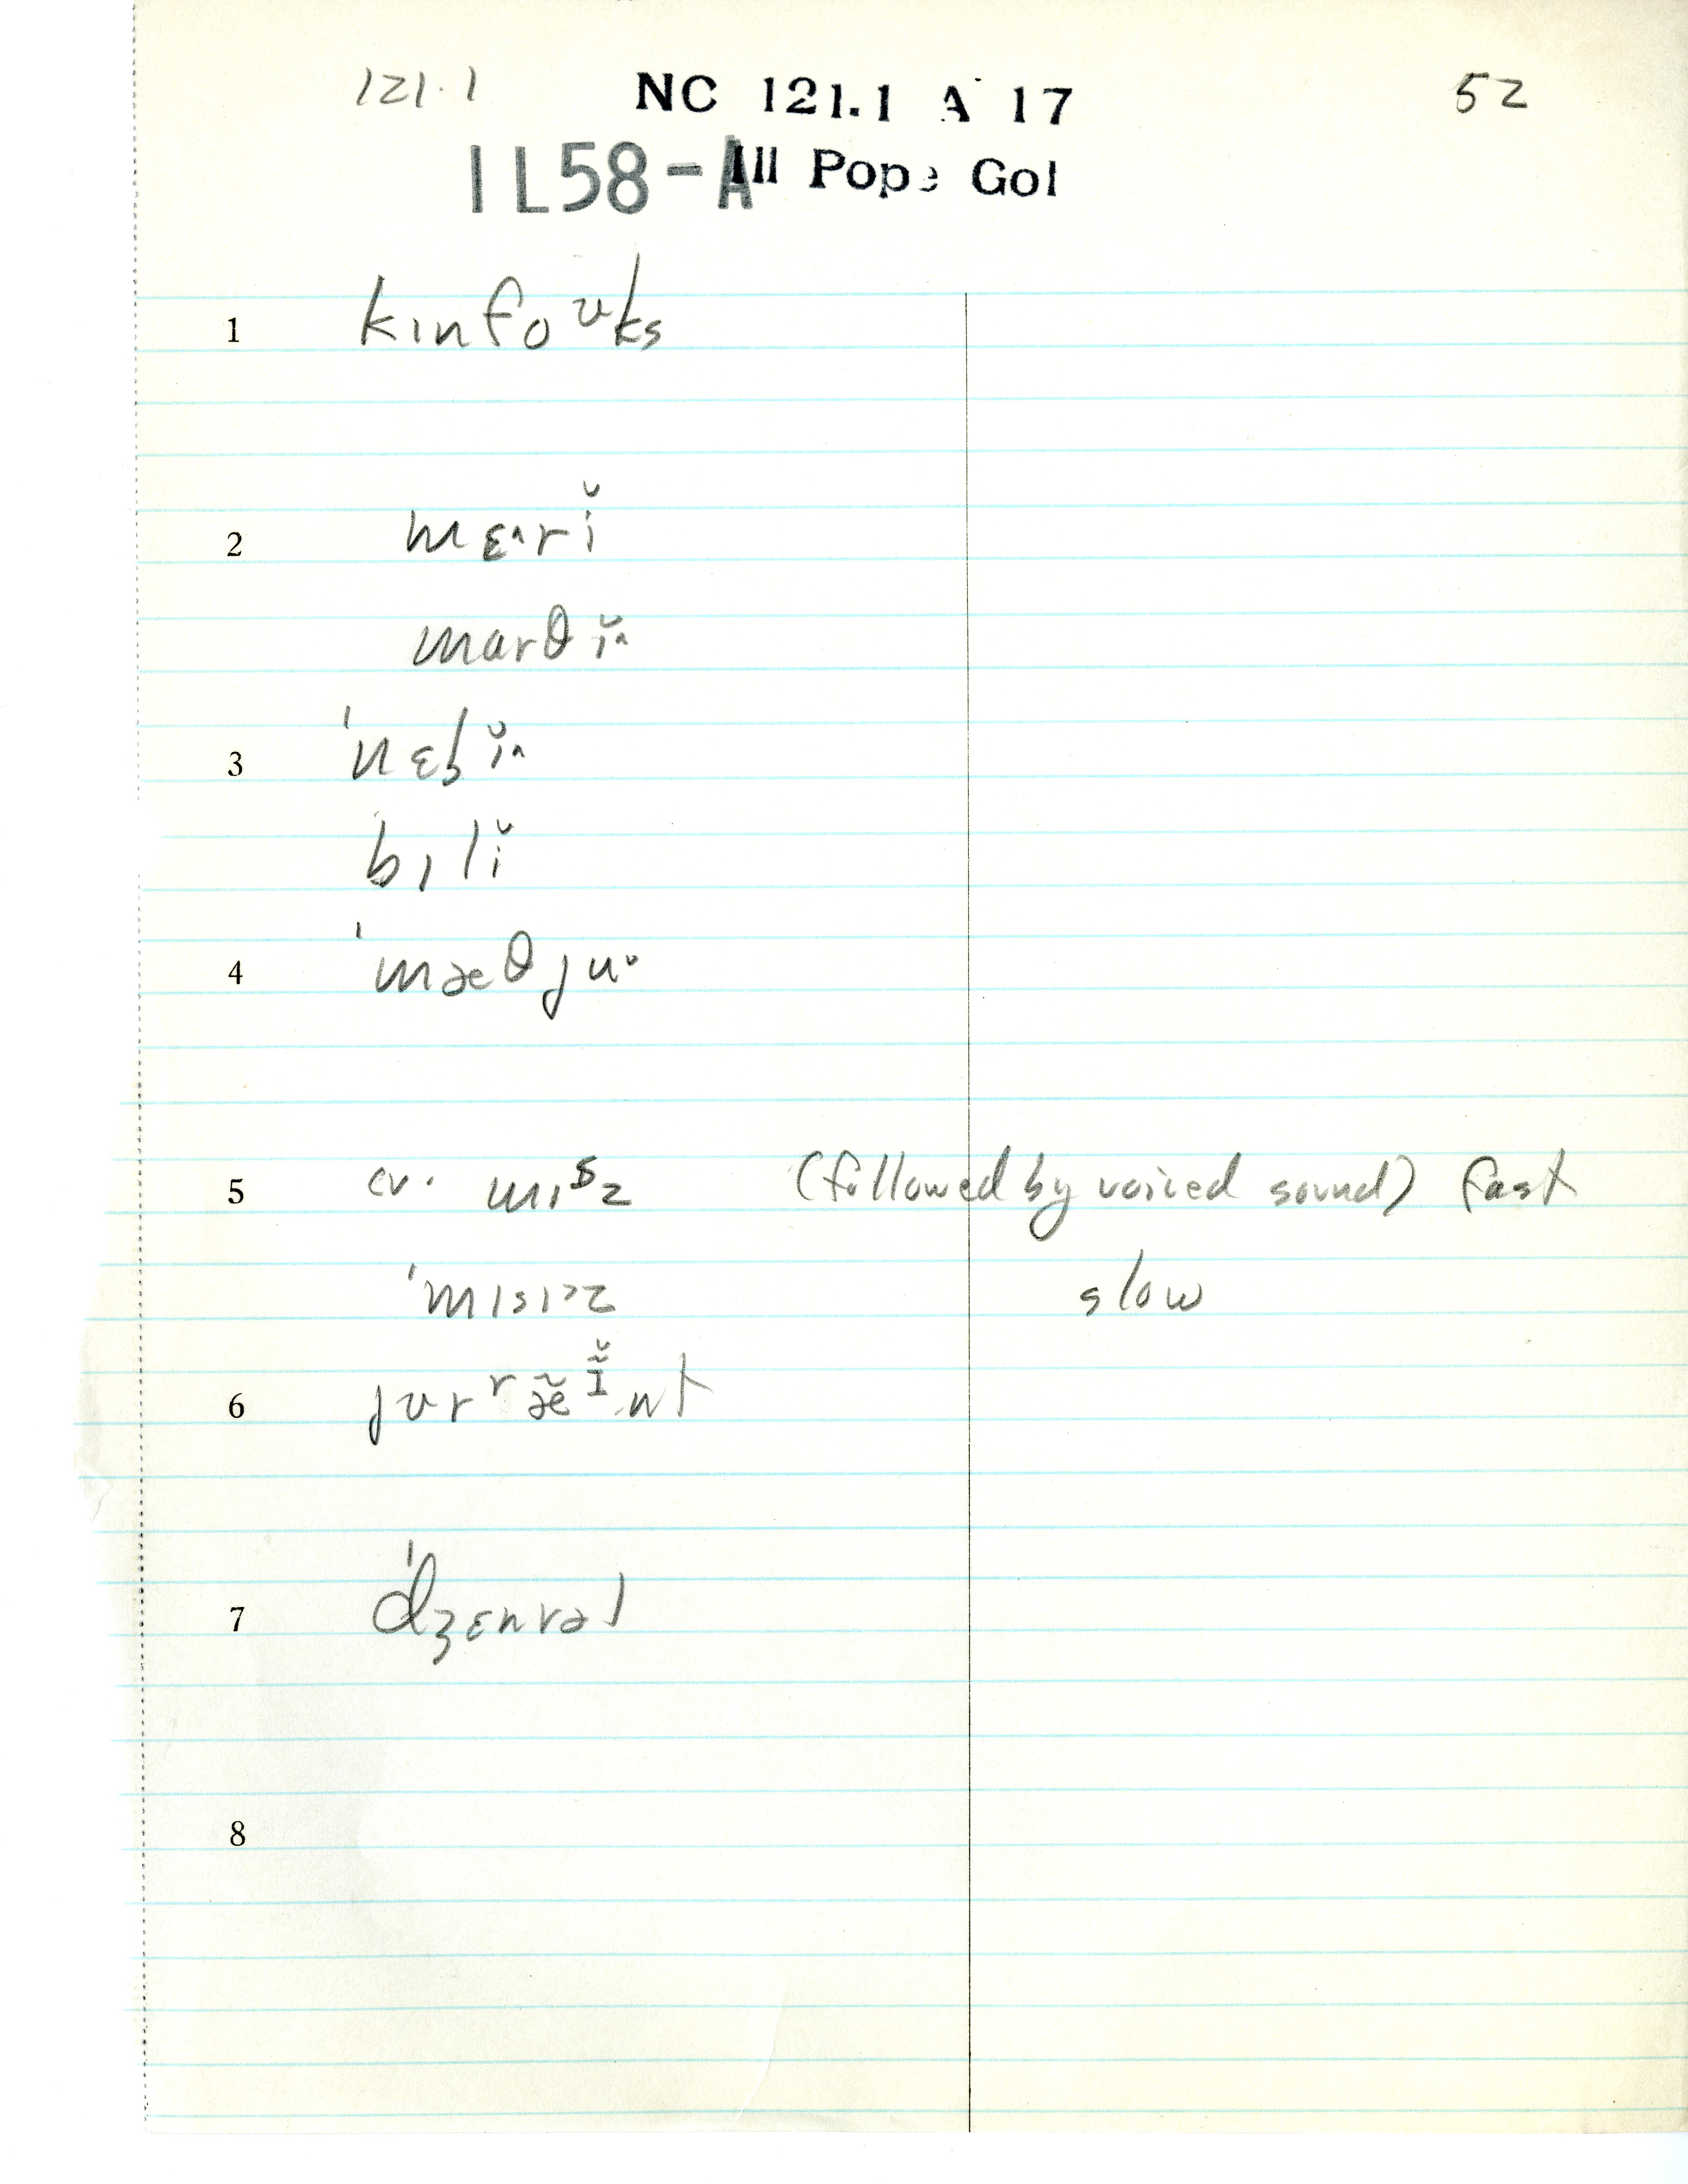 121.1 NC 121.1 A 17 52
IL58-A Ill Pope Gol
1 kɪnfoᶷks
2 mɛ˄rĭ
marθĭ˄
3 ˈnɛlsĭ˄
bɪlĭ
4 ˈmæθju˅
5 cv. mɪˢz (followed by voiced sound) fast
ˈmɪsɪ˃z slow
6 jʊrʳæ̃ᴵ̯̃nt
7 ˈdʒɛnrəl
8